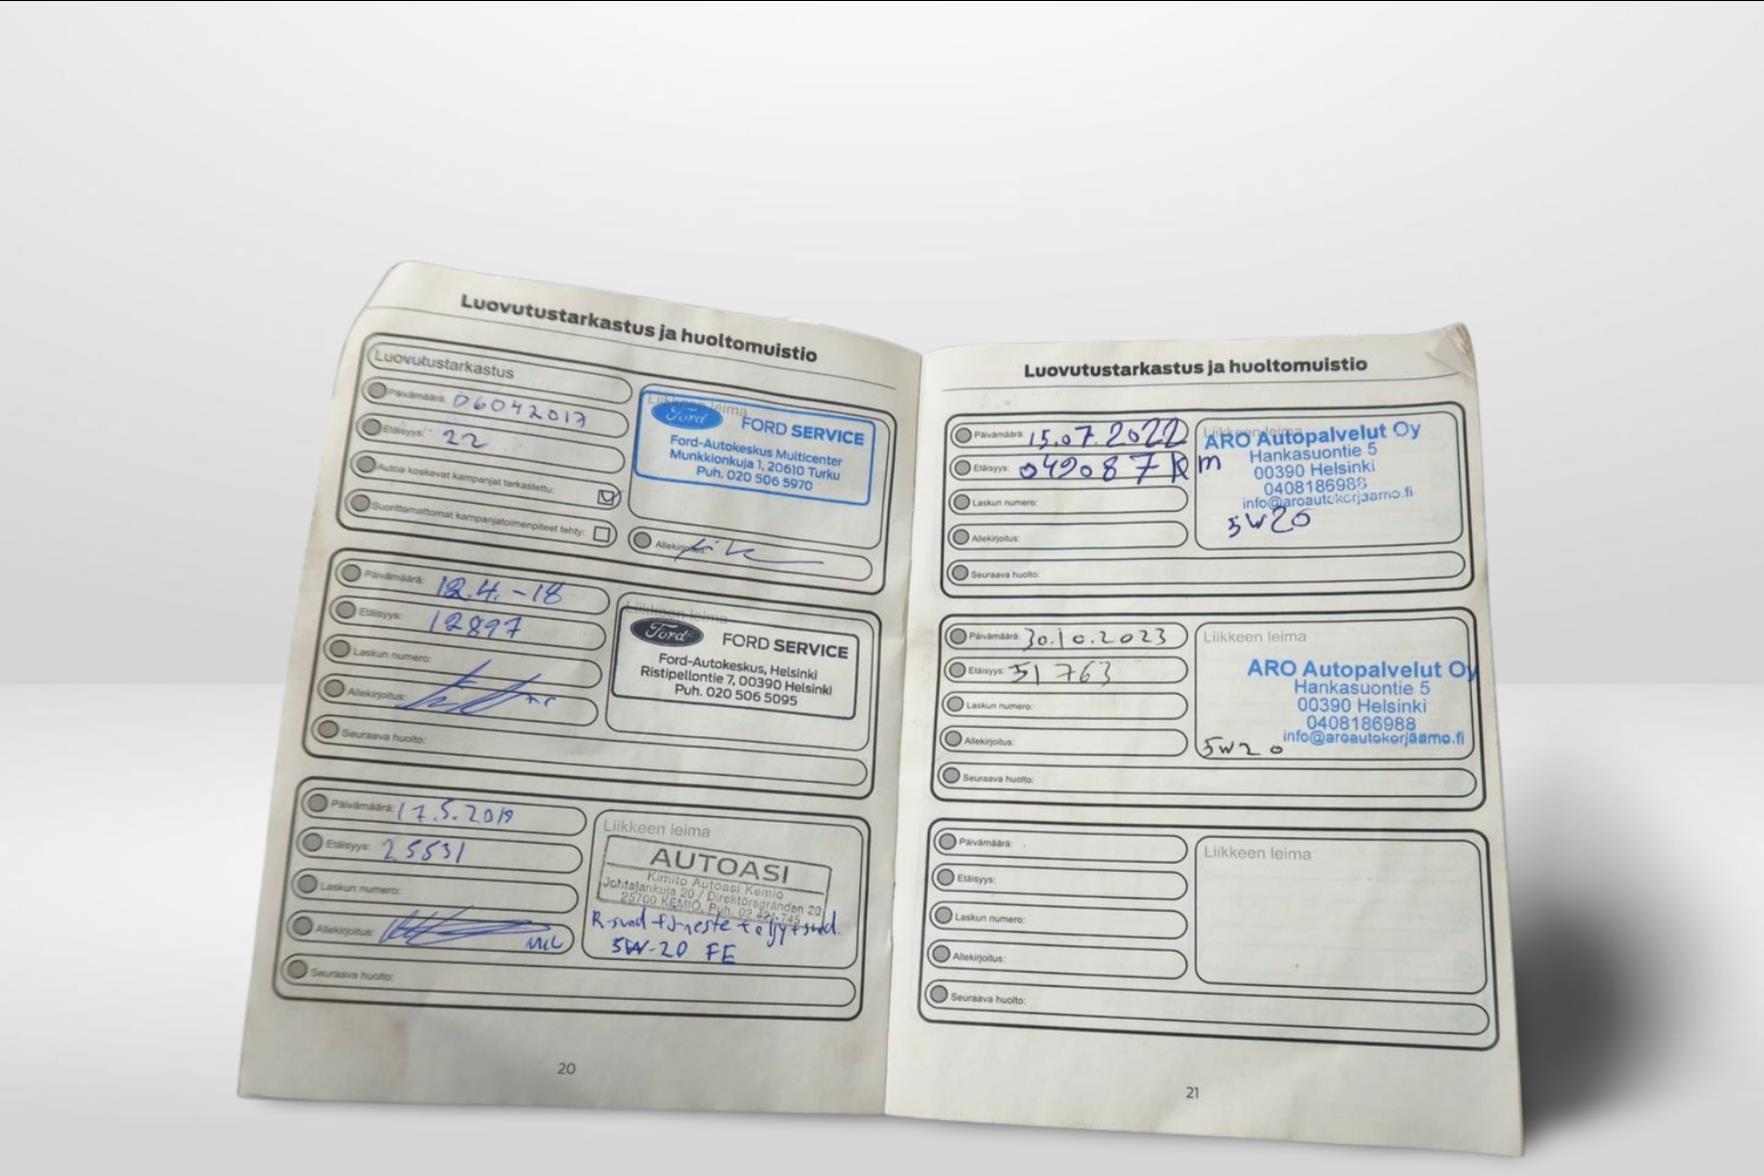 Luovutustarkastus ja huoltomuistio
Luovutustarkastus
Päivämäärä: 06042017
Etäisyys: 22
Autoa koskevat kampanjat tarkastettu:
Suorittamattomat kampanjatoimenpiteet tehty:
Liikkeen leima
Ford FORD SERVICE
Ford-Autokeskus Multicenter
Munkkionkuja 1, 20610 Turku
Puh. 020 506 5970
Allekirjoitus:
Päivämäärä: 12.4.-18
Etäisyys: 12897
Laskun numero:
Allekirjoitus:
Seuraava huolto:
Liikkeen leima
Ford FORD SERVICE
Ford-Autokeskus, Helsinki
Ristipellontie 7, 00390 Helsinki
Puh. 020 506 5095
Päivämäärä: 17.5.2019
Etäisyys: 25531
Laskun numero:
Allekirjoitus:
Seuraava huolto:
Liikkeen leima
AUTOASI
Kimito Autoasi Kemiö
Johtajankuja 20 / Direktörsgränden 20
25700 KEMIÖ, Puh. 02 421 745
5W-20 FE
20
Luovutustarkastus ja huoltomuistio
Päivämäärä: 15.07.2022
Etäisyys: 049087 km
Laskun numero:
Allekirjoitus:
Seuraava huolto:
Liikkeen leima
ARO Autopalvelut Oy
Hankasuontie 5
00390 Helsinki
0408186988
info@aroautokorjaamo.fi
5W20
Päivämäärä: 30.10.2023
Etäisyys: 51763
Laskun numero:
Allekirjoitus:
Seuraava huolto:
Liikkeen leima
ARO Autopalvelut Oy
Hankasuontie 5
00390 Helsinki
0408186988
info@aroautokorjaamo.fi
5W20
Päivämäärä:
Etäisyys:
Laskun numero:
Allekirjoitus:
Seuraava huolto:
Liikkeen leima
21